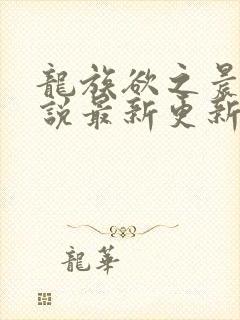 龍族欲之晨
説最新更新
龍華